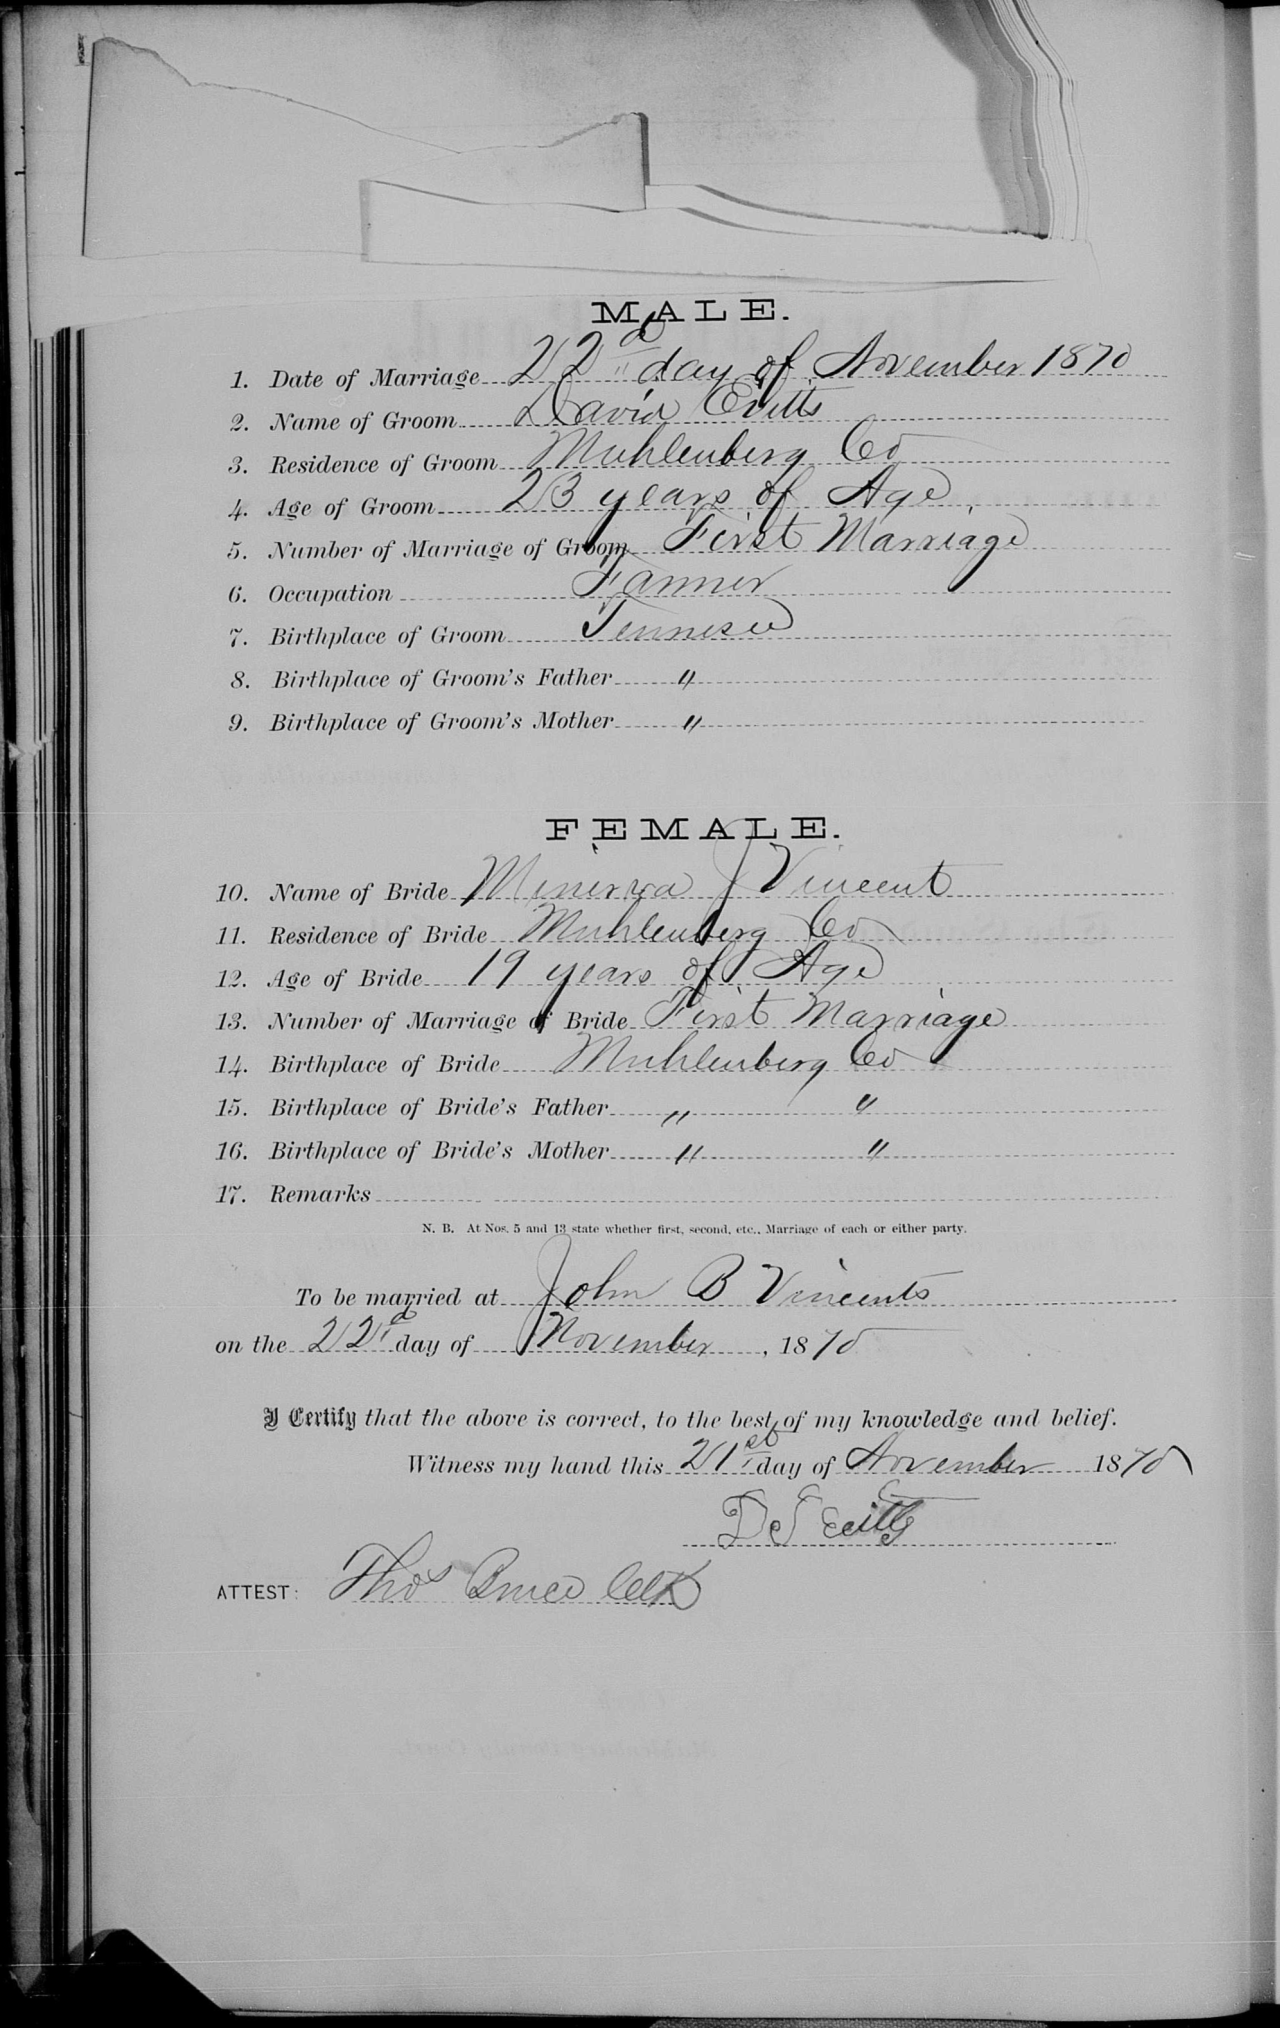 MALE.
1. Date of Marriage 22d day of November 1870
2. Name of Groom David Evitts
3. Residence of Groom Muhlenberg Co
4. Age of Groom 23 years of Age
5. Number of Marriage of Groom First Marriage
6. Occupation Farmer
7. Birthplace of Groom Tennesee
8. Birthplace of Groom's Father "
9. Birthplace of Groom's Mother "
FEMALE.
10. Name of Bride Minerva J Vincent
11. Residence of Bride Muhlenberg Co
12. Age of Bride 19 years of Age
13. Number of Marriage of Bride First Marriage
14. Birthplace of Bride Muhlenberg Co
15. Birthplace of Bride's Father " "
16. Birthplace of Bride's Mother " "
17. Remarks
N. B. At Nos. 5 and 13 state whether first, second, etc., Marriage of each or either party.
To be married at John B Vincents
on the 22d day of November, 1870
I Certify that the above is correct, to the best of my knowledge and belief.
Witness my hand this 21st day of November 1870
D T Evitts
ATTEST: Thos Bruce Clk